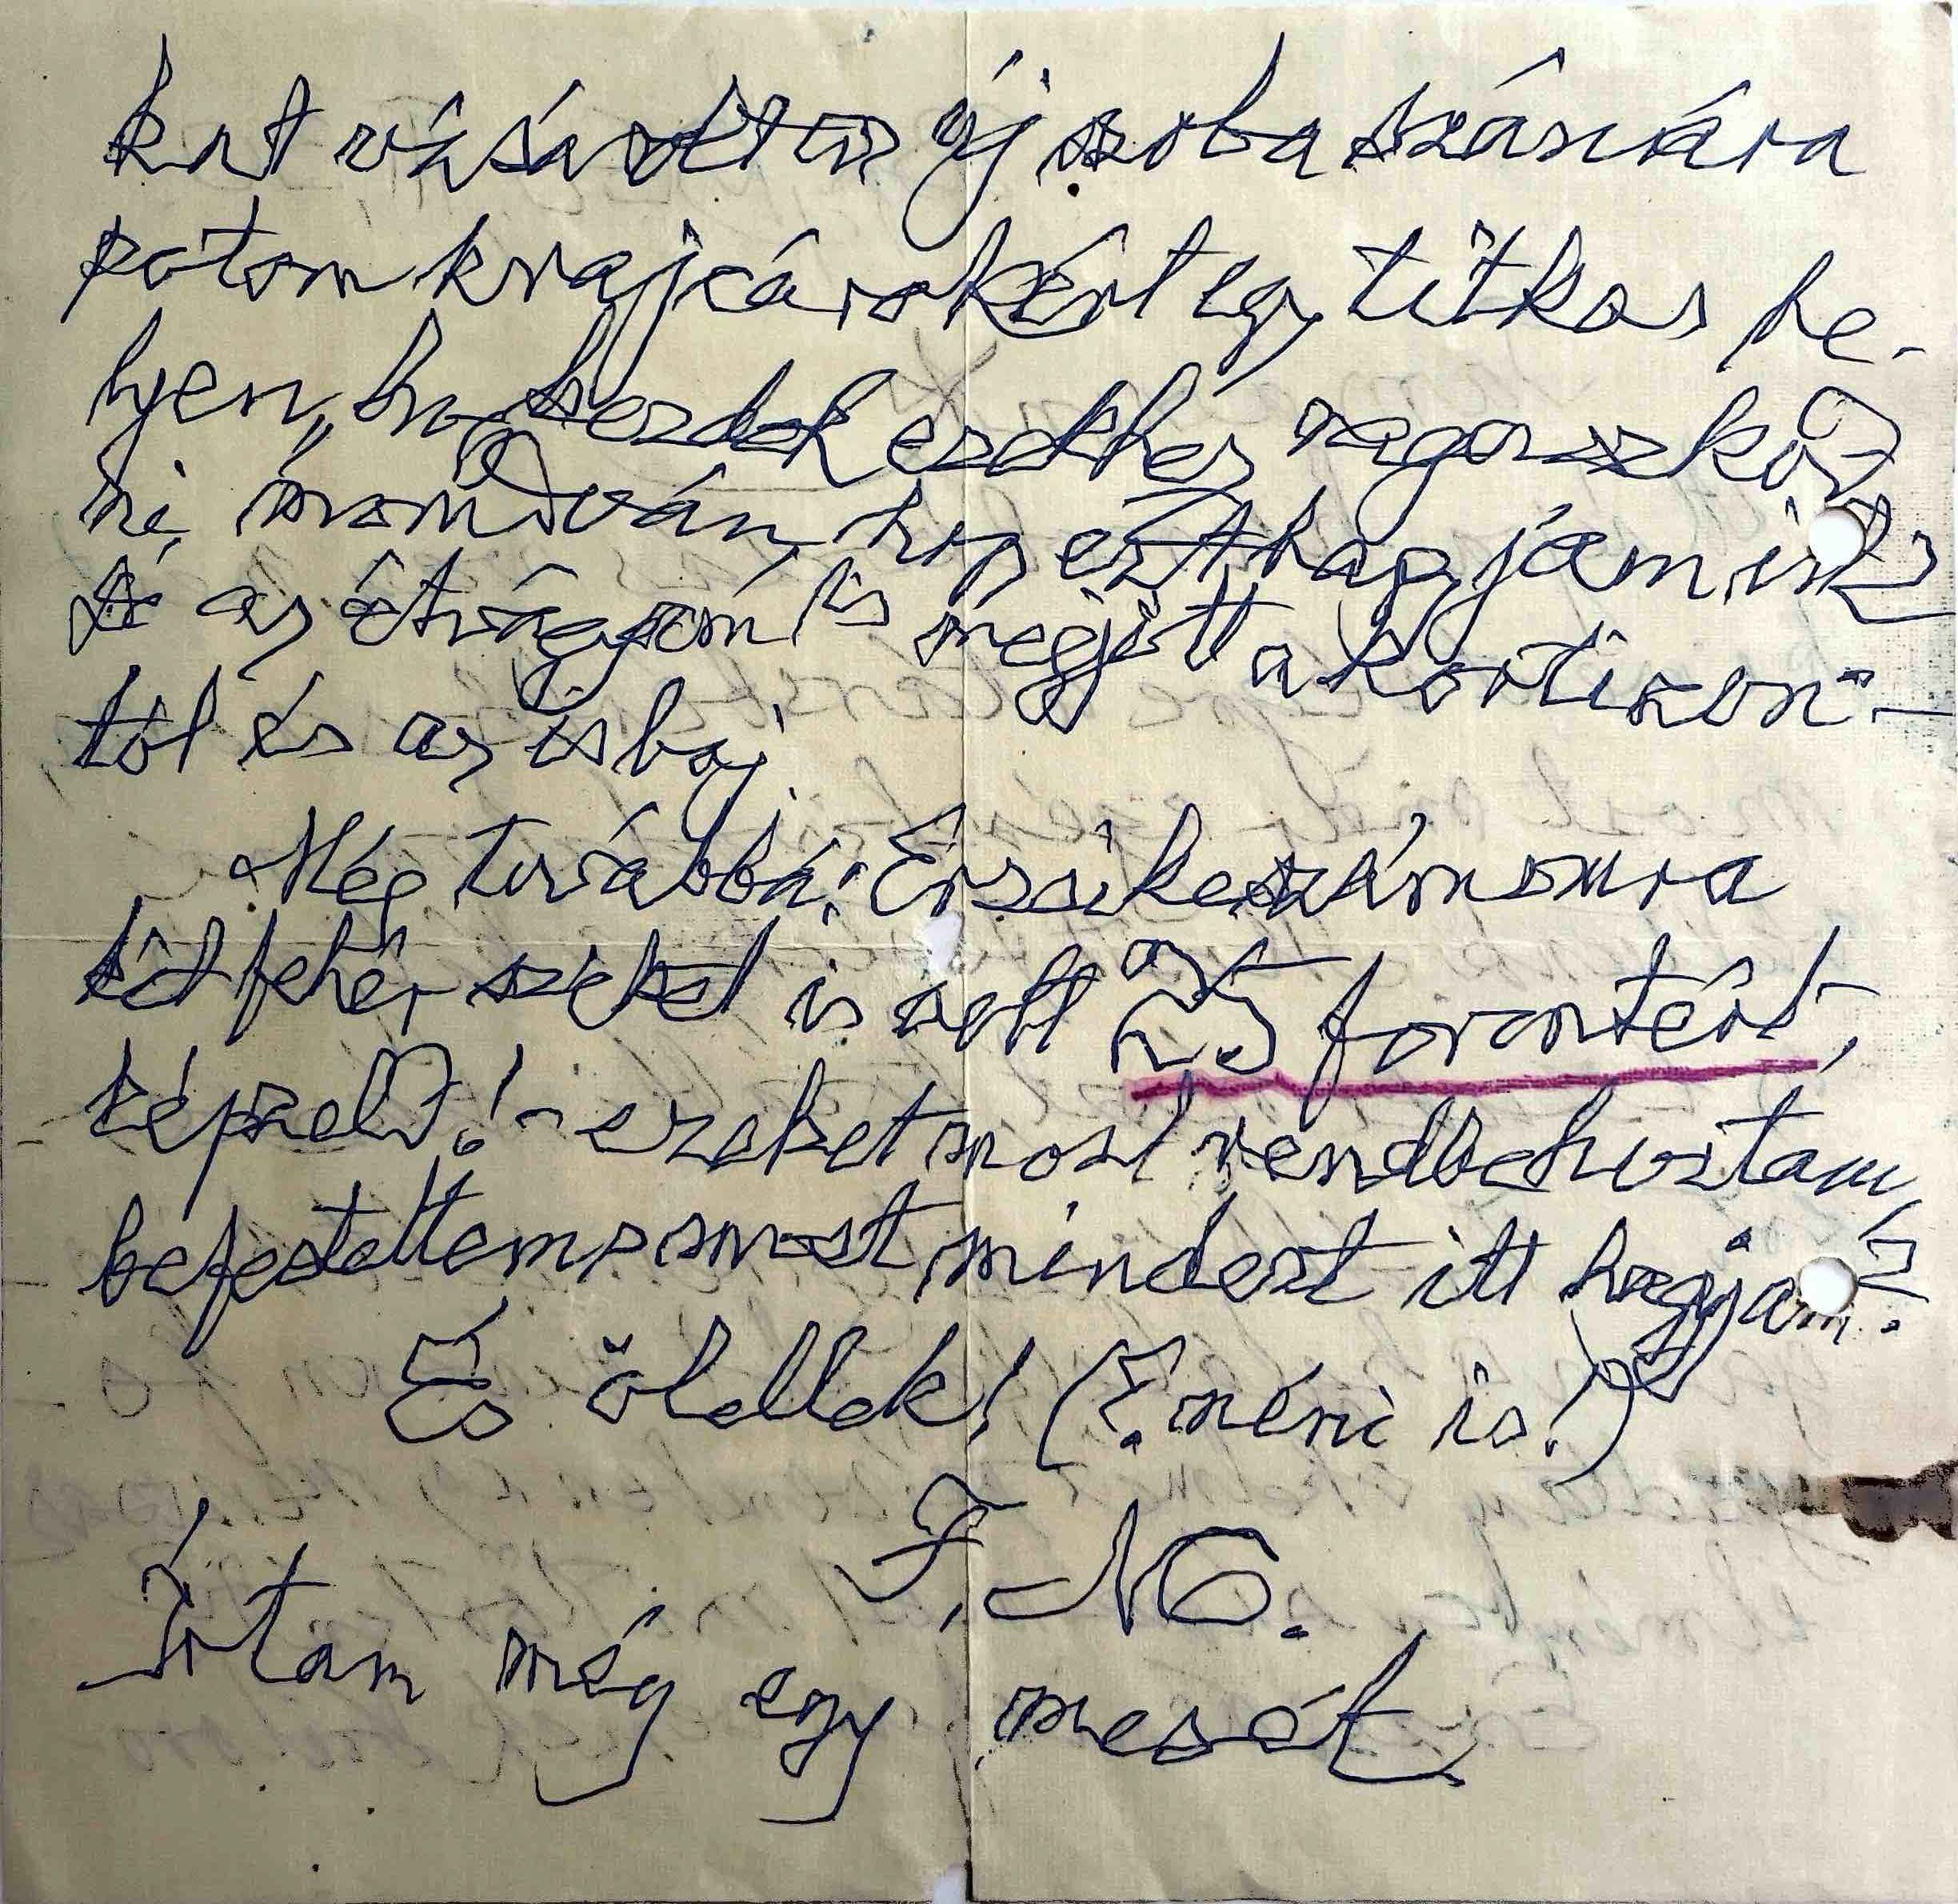 kat vásárolt az új szoba számára
potom krajcárokért egy titkos he-
lyen, kezdek ezekhez ragaszkod
ni, mondván, hogy ezt hagyjam itt?
S az étvágyam is megjött a kortizon-
tól és az is baj.
Még továbbá: Erzsike számomra
két fehér széket is vett 25 forintért,
képzeld! - ezeket most rendbehoztam,
befestettem s most mindezt itt hagyjam?
És ölellek! (E. néni is!)
F. NG.
Írtam még egy mesét.